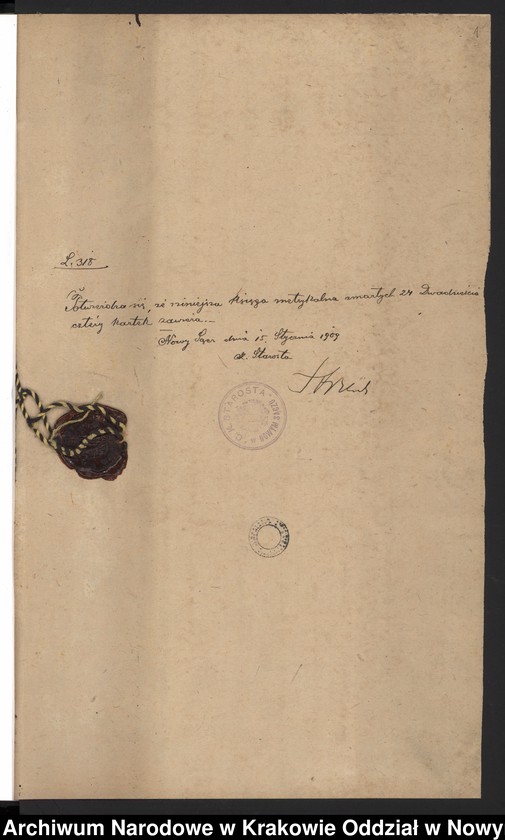 L. 318
Potwierdza się, że niniejsza księga metrykalna zmarłych 24 Dwadzieścia
cztery kartek zawiera.—
Nowy Sącz dnia 15. Stycznia 1909
Starosta
C. K. STAROSTA
Archiwum Narodowe w Krakowie Oddział w Nowy